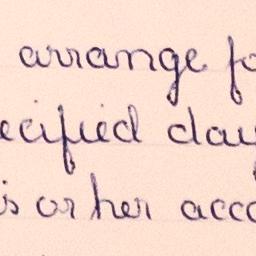 arrange fo
ecified day
is or her acco